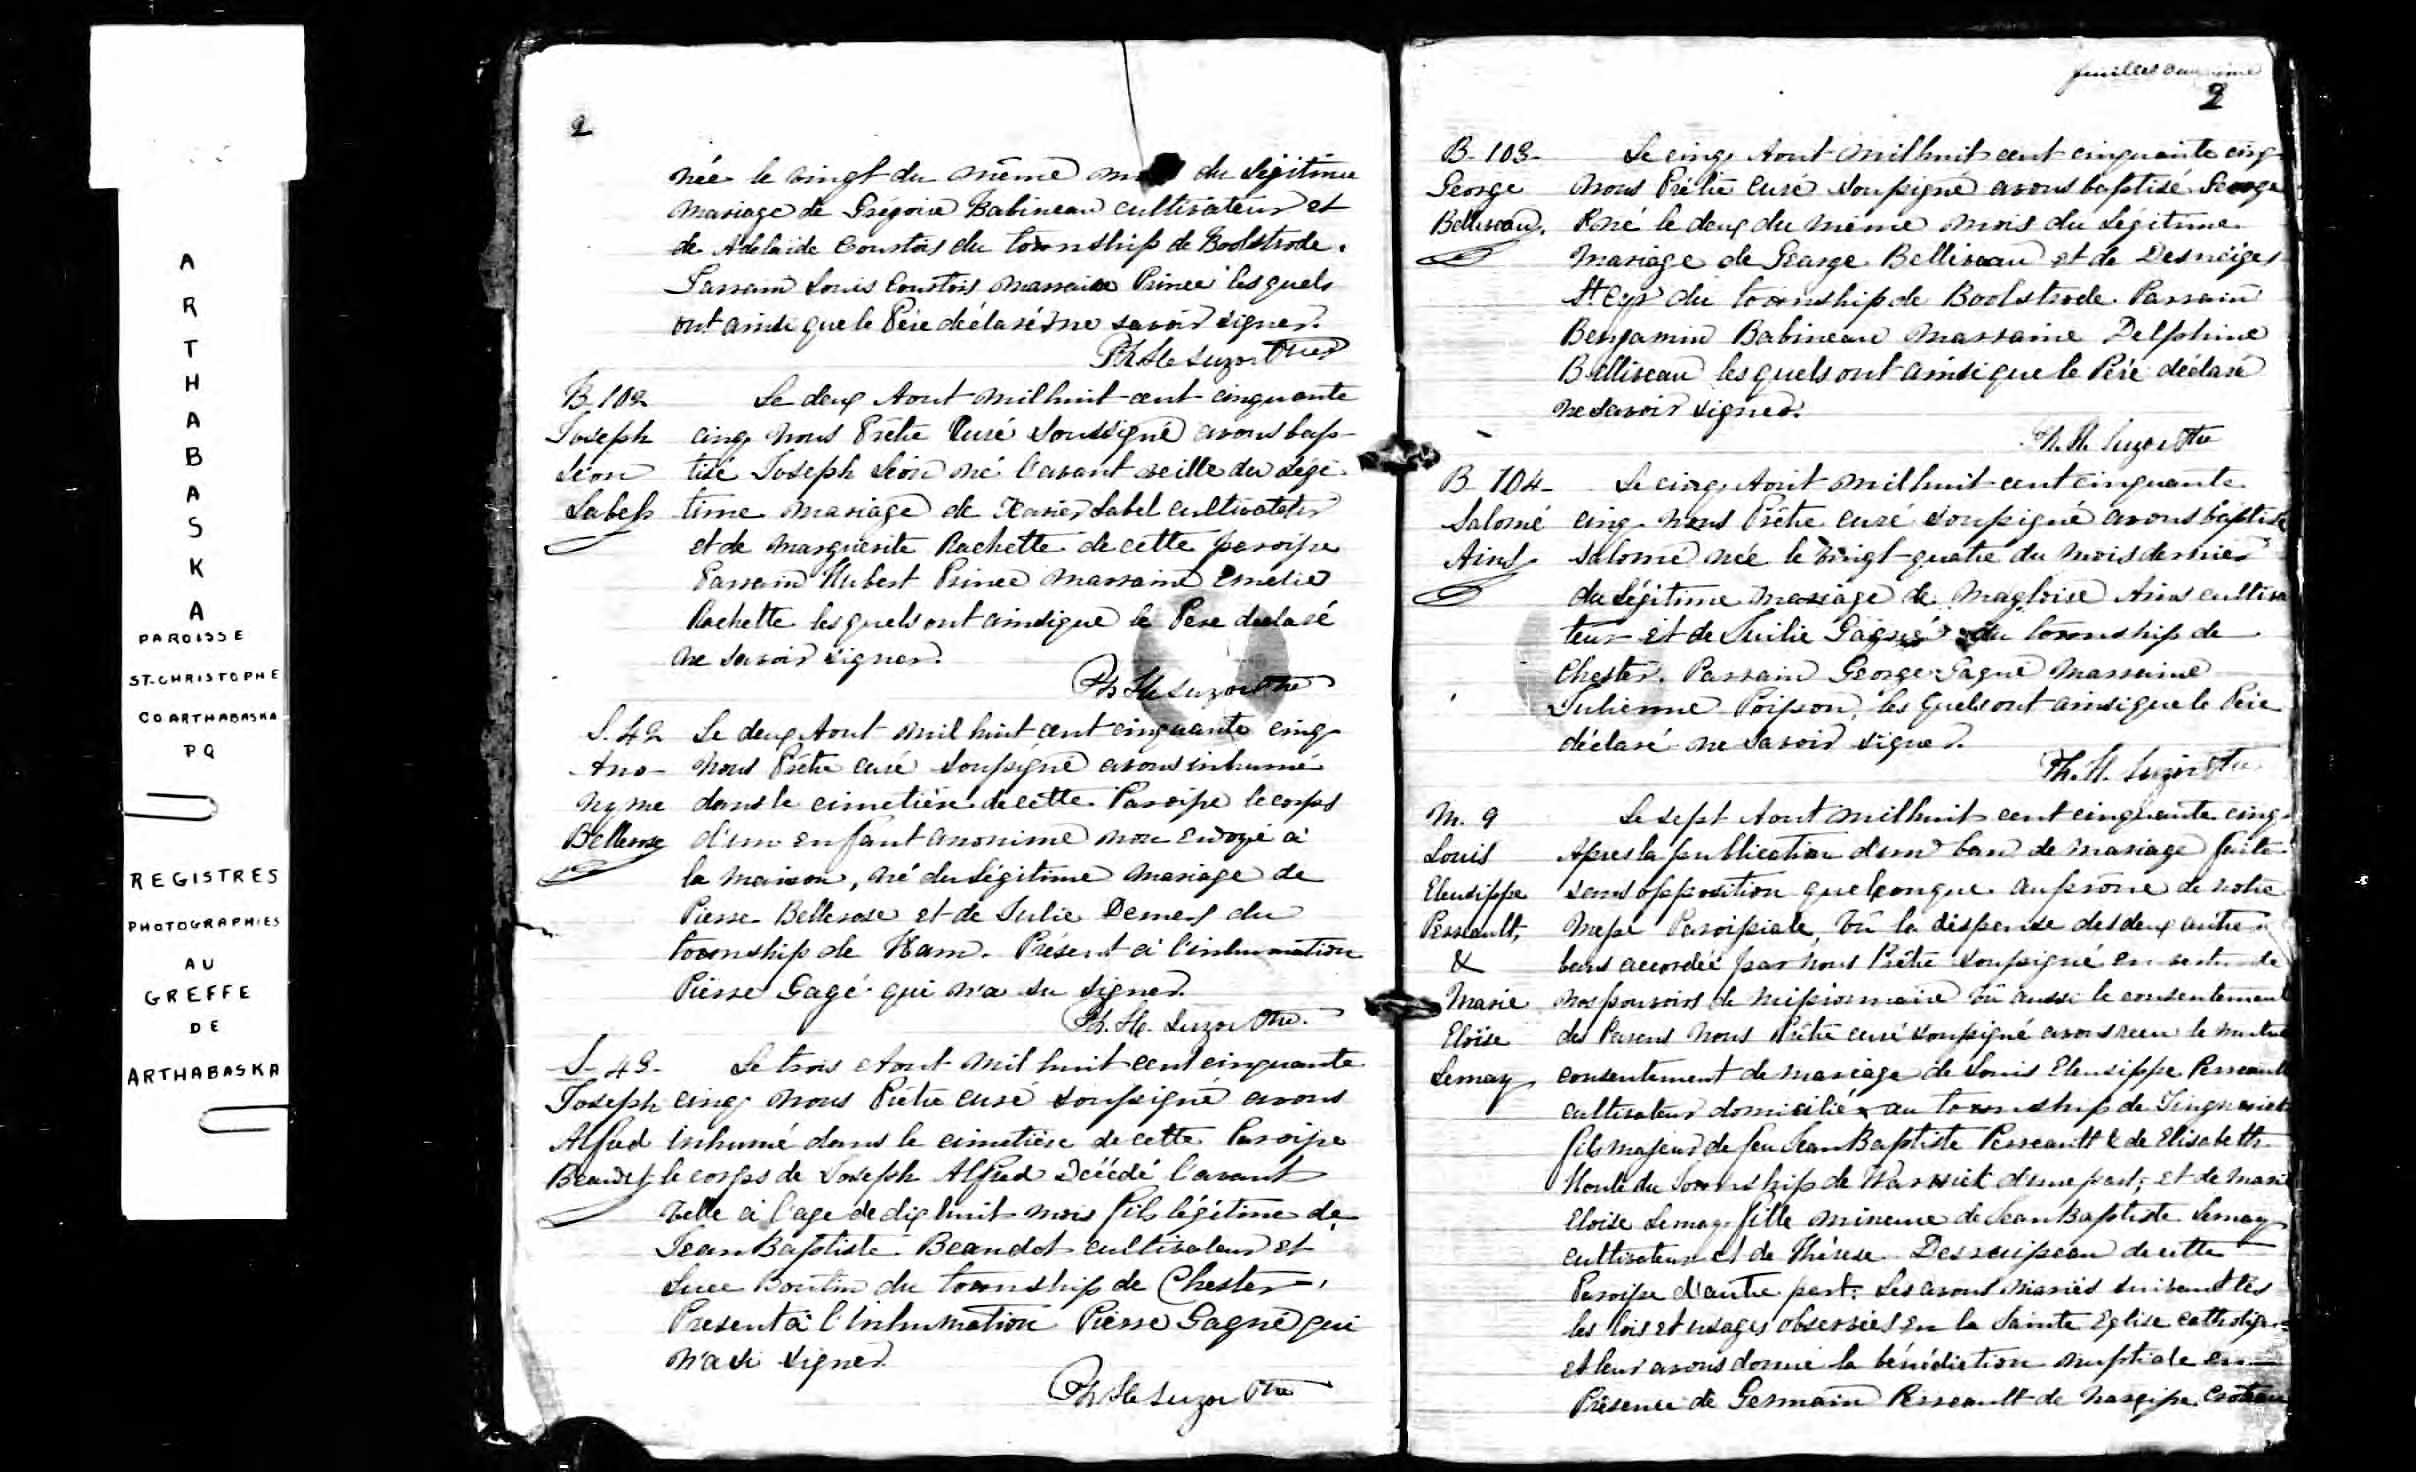 A
R
T
H
A
B
A
S
K
A
PAROISSE
ST-CHRISTOPHE
CO ARTHABASKA
P Q
REGISTRES
PHOTOGRAPHIES
AU
GREFFE
DE
ARTHABASKA
2
née le vingt du même du Légitime
mariage de Grégoire Babineau cultivateur et
de Adelaide Courtois du township de Boolstrode.
Parrain Louis Courtois marraine Prince les quels
ont ainsi que le Père déclaré ne savoir signer.
Ph. H. Suzor Ptre
B. 102
Joseph
Léon
Labell
Le deux Aout mil huit cent cinquante
cinq nous Prêtre Curé Soussigné avons bap-
tisé Joseph Léon né l'avant veille du Légi-
time mariage de Xavier Label cultivateur
et de Marguerite Rachette de cette paroisse
Parrain Hubert Prince marraine Emelie
Rachette les quels ont ainsi que le Père declaré
ne savoir signer.
Ph. H. Suzor Ptre
S. 42
Ano-
nyme
Bellerose
Le deux Aout mil huit cent cinquante cinq
nous Prêtre curé soussigné avons inhumé
dans le cimetière de cette Paroisse le corps
d'un enfant anonime mon endoyé à
la maison, né du Légitime mariage de
Pierre Bellerose et de Julie Demers du
township de Ham. Présent à l'inhumation
Pierre Gagé qui n'a su signer.
Ph. H. Suzor Ptre.
S. 43.
Joseph
Alfred
Beaudet
Le trois Aout mil huit cent cinquante
cinq nous Prêtre curé soussigné avons
inhumé dans le cimetière de cette Paroisse
le corps de Joseph Alfred décédé l'avant
velle à l'age de dix huit mois fils légitime de
Jean Baptiste Beaudet cultivateur et
Luce Boutin du township de Chester,
Present à l'inhumation Pierre Gagné qui
n'a su signer.
Ph. H. Suzor Ptre
feuillet deuxième
2
B. 103-
George
Belliveau.
Le cinq Aout mil huit cent cinquante cinq
nous Prêtre curé soussigné avons baptisé George
né le deux du même mois du Légitime
mariage de George Belliveau et de Desneiges
St Cyr du township de Boolstrode. Parrain
Benjamin Babineau marraine Delphine
Belliveau les quels ont ainsi que le Père déclaré
ne savoir signer.
Ph. H. Suzor Ptre
B. 104-
Salomé
Le cinq Aout mil huit cent cinquante
cinq nous Prêtre curé soussigné avons baptisé
Salomé née le vingt-quatre du mois dernier
du Légitime mariage de Magloire cultiva
teur et de Gagné du township de
Chester. Parrain George Gagné marraine
Julienne Poisson, les quels ont ainsi que le Père
déclaré ne savoir signer.
Ph. H. Suzor Ptre
M. 9
Louis
Eleusippe
Perreault,
&
Marie
Eloïse
Lemay
Le sept Aout mil huit cent cinquante cinq
Apres la publication d'un ban de mariage faite
sans opposition quelconque au prône de notre
Messe Paroissiale, vû la dispense des deux autres
bans accordée par nous Prêtre soussigné en vertu de
nos pouvoirs de missionnaire vû aussi le consentement
des Parens nous Prêtre curé soussigné avons recu le mutuel
consentement de mariage de Louis Eleusippe Perreault
cultivateur domicilié au township de Tingwick
fils majeur de feu Jean Baptiste Perreault & de Elisabeth
Houle du township de Warwick d'une part; et de Marie
Eloise Lemay fille mineure de Jean Baptiste Lemay
cultivateur et de Thérese Desruisseau de cette
Paroisse d'autre part: Les avons mariés suivant les
les lois et usages observées en la Sainte Eglise catholique
et leur avons donné la bénédiction nuptiale en
Présence de Germain Perreault de Narcisse Croteau